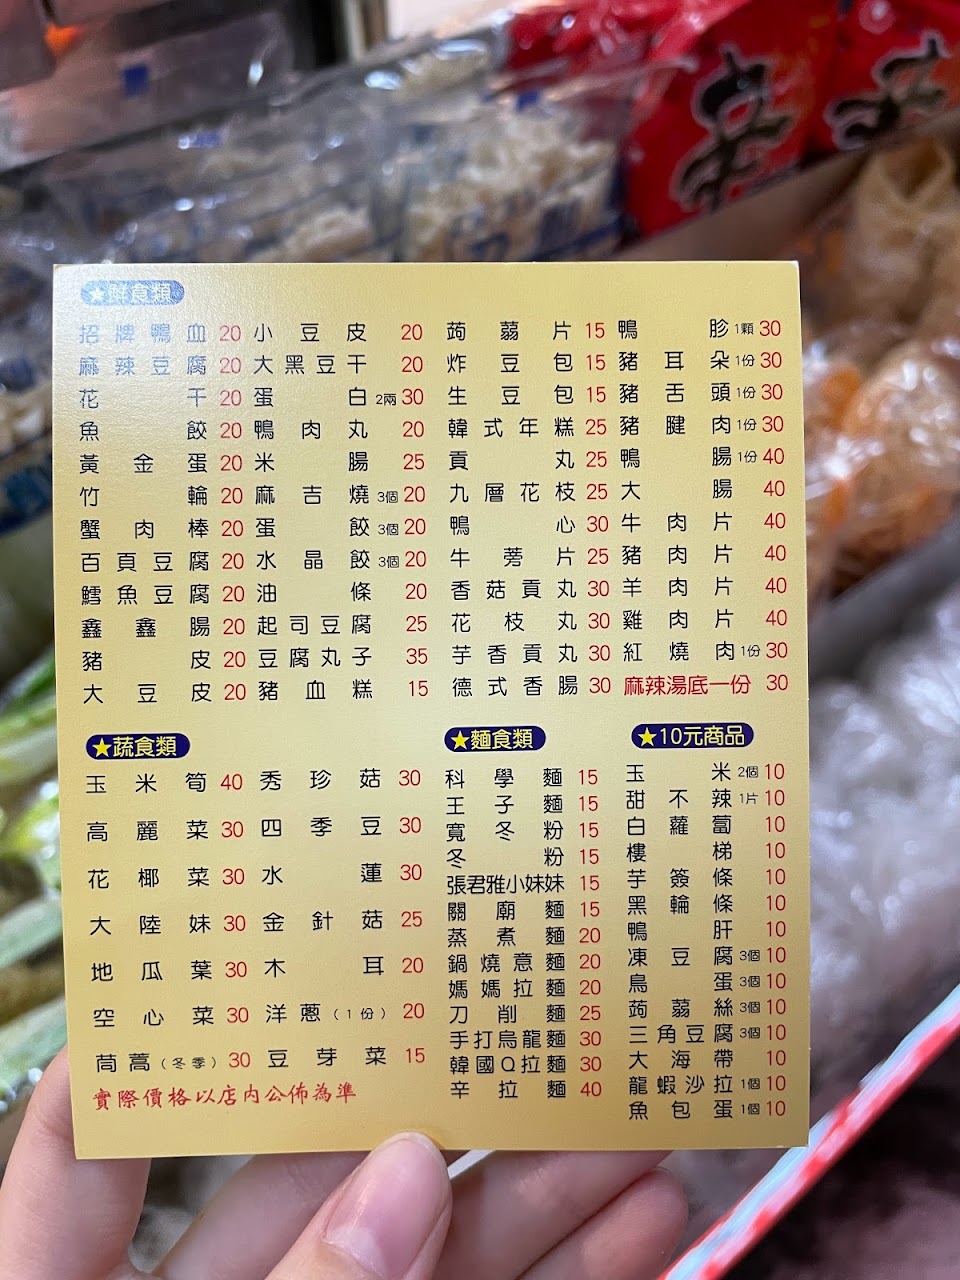 ★鮮食類
招牌鴨血 20
麻辣豆腐 20
花干 20
魚餃 20
黃金蛋 20
竹輪 20
蟹肉棒 20
百頁豆腐 20
鱈魚豆腐 20
鑫鑫腸 20
豬皮 20
大豆皮 20
小豆皮 20
大黑豆干 20
蛋白 2兩 30
鴨肉丸 20
米腸 25
麻吉燒 3個 20
蛋餃 3個 20
水晶餃 3個 20
油條 20
起司豆腐 25
豆腐丸子 35
豬血糕 15
蒟蒻片 15
炸豆包 15
生豆包 15
韓式年糕 25
貢丸 25
九層花枝 25
鴨心 30
牛蒡片 25
香菇貢丸 30
花枝丸 30
芋香貢丸 30
德式香腸 30
鴨胗 1顆 30
豬耳朵 1份 30
豬舌頭 1份 30
豬腱肉 1份 30
鴨腸 1份 40
大腸 40
牛肉片 40
豬肉片 40
羊肉片 40
雞肉片 40
紅燒肉 1份 30
麻辣湯底一份 30
★蔬食類
玉米筍 40
高麗菜 30
花椰菜 30
大陸妹 30
地瓜葉 30
空心菜 30
茼蒿(冬季) 30
秀珍菇 30
四季豆 30
水蓮 30
金針菇 25
木耳 20
洋蔥(1份) 20
豆芽菜 15
實際價格以店內公佈為準
★麵食類
科學麵 15
王子麵 15
寬冬粉 15
冬粉 15
張君雅小妹妹 15
關廟麵 15
蒸煮麵 20
鍋燒意麵 20
媽媽拉麵 20
刀削麵 25
手打烏龍麵 30
韓國Q拉麵 30
辛拉麵 40
★10元商品
玉米 2個 10
甜不辣 1片 10
白蘿蔔 10
樓梯 10
芋簽條 10
黑輪條 10
鴨肝 10
凍豆腐 3個 10
鳥蛋 3個 10
蒟蒻絲 3個 10
三角豆腐 3個 10
大海帶 10
龍蝦沙拉 1個 10
魚包蛋 1個 10
辛